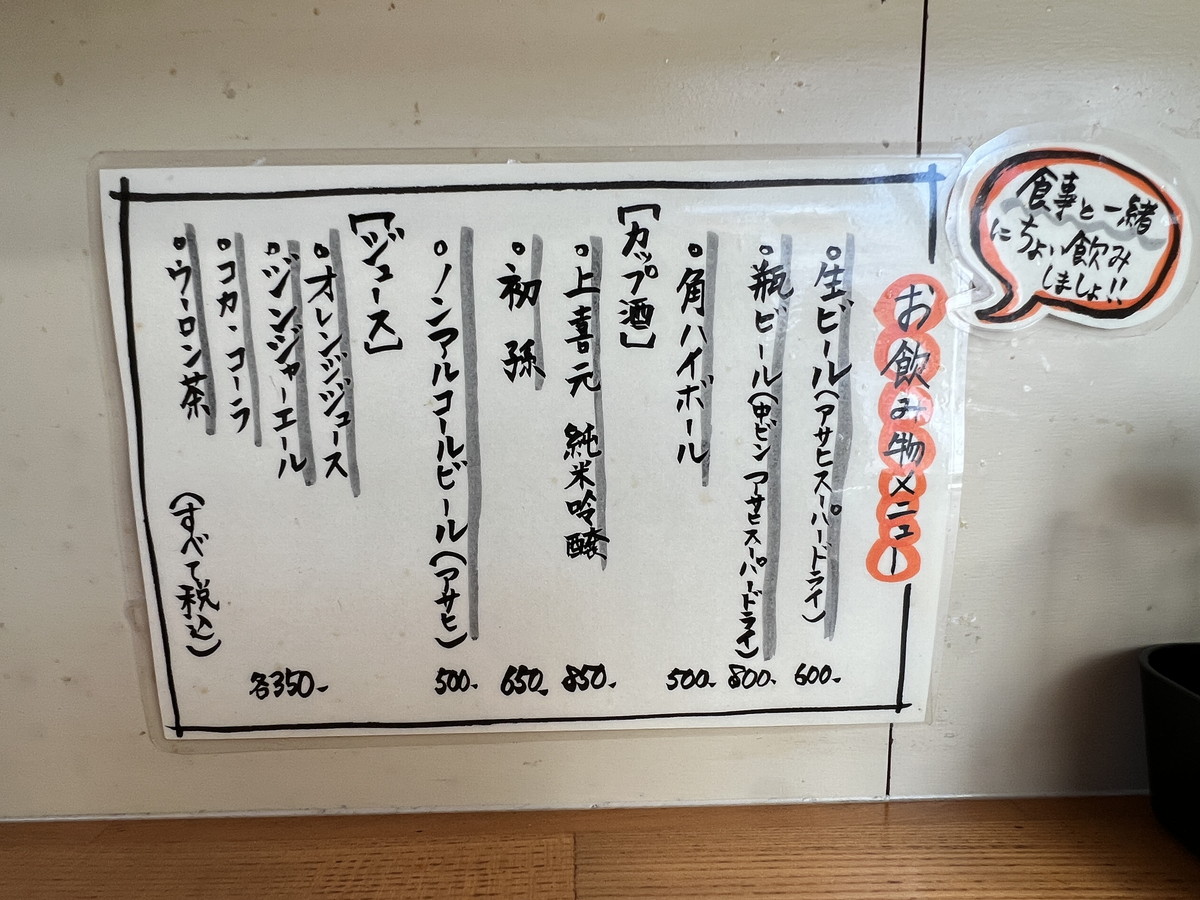 お飲み物メニュー
食事と一緒
にちょい飲み
しましょ!!
・生ビール(アサヒスーパードライ) 600-
・瓶ビール(中ビン アサヒスーパードライ) 800-
・角ハイボール 500-
【カップ酒】
・上喜元 純米吟醸 850-
・初孫 650-
・ノンアルコールビール(アサヒ) 500-
【ジュース】
・オレンジジュース
・ジンジャーエール
・コカ・コーラ
・ウーロン茶
各350-
(すべて税込)